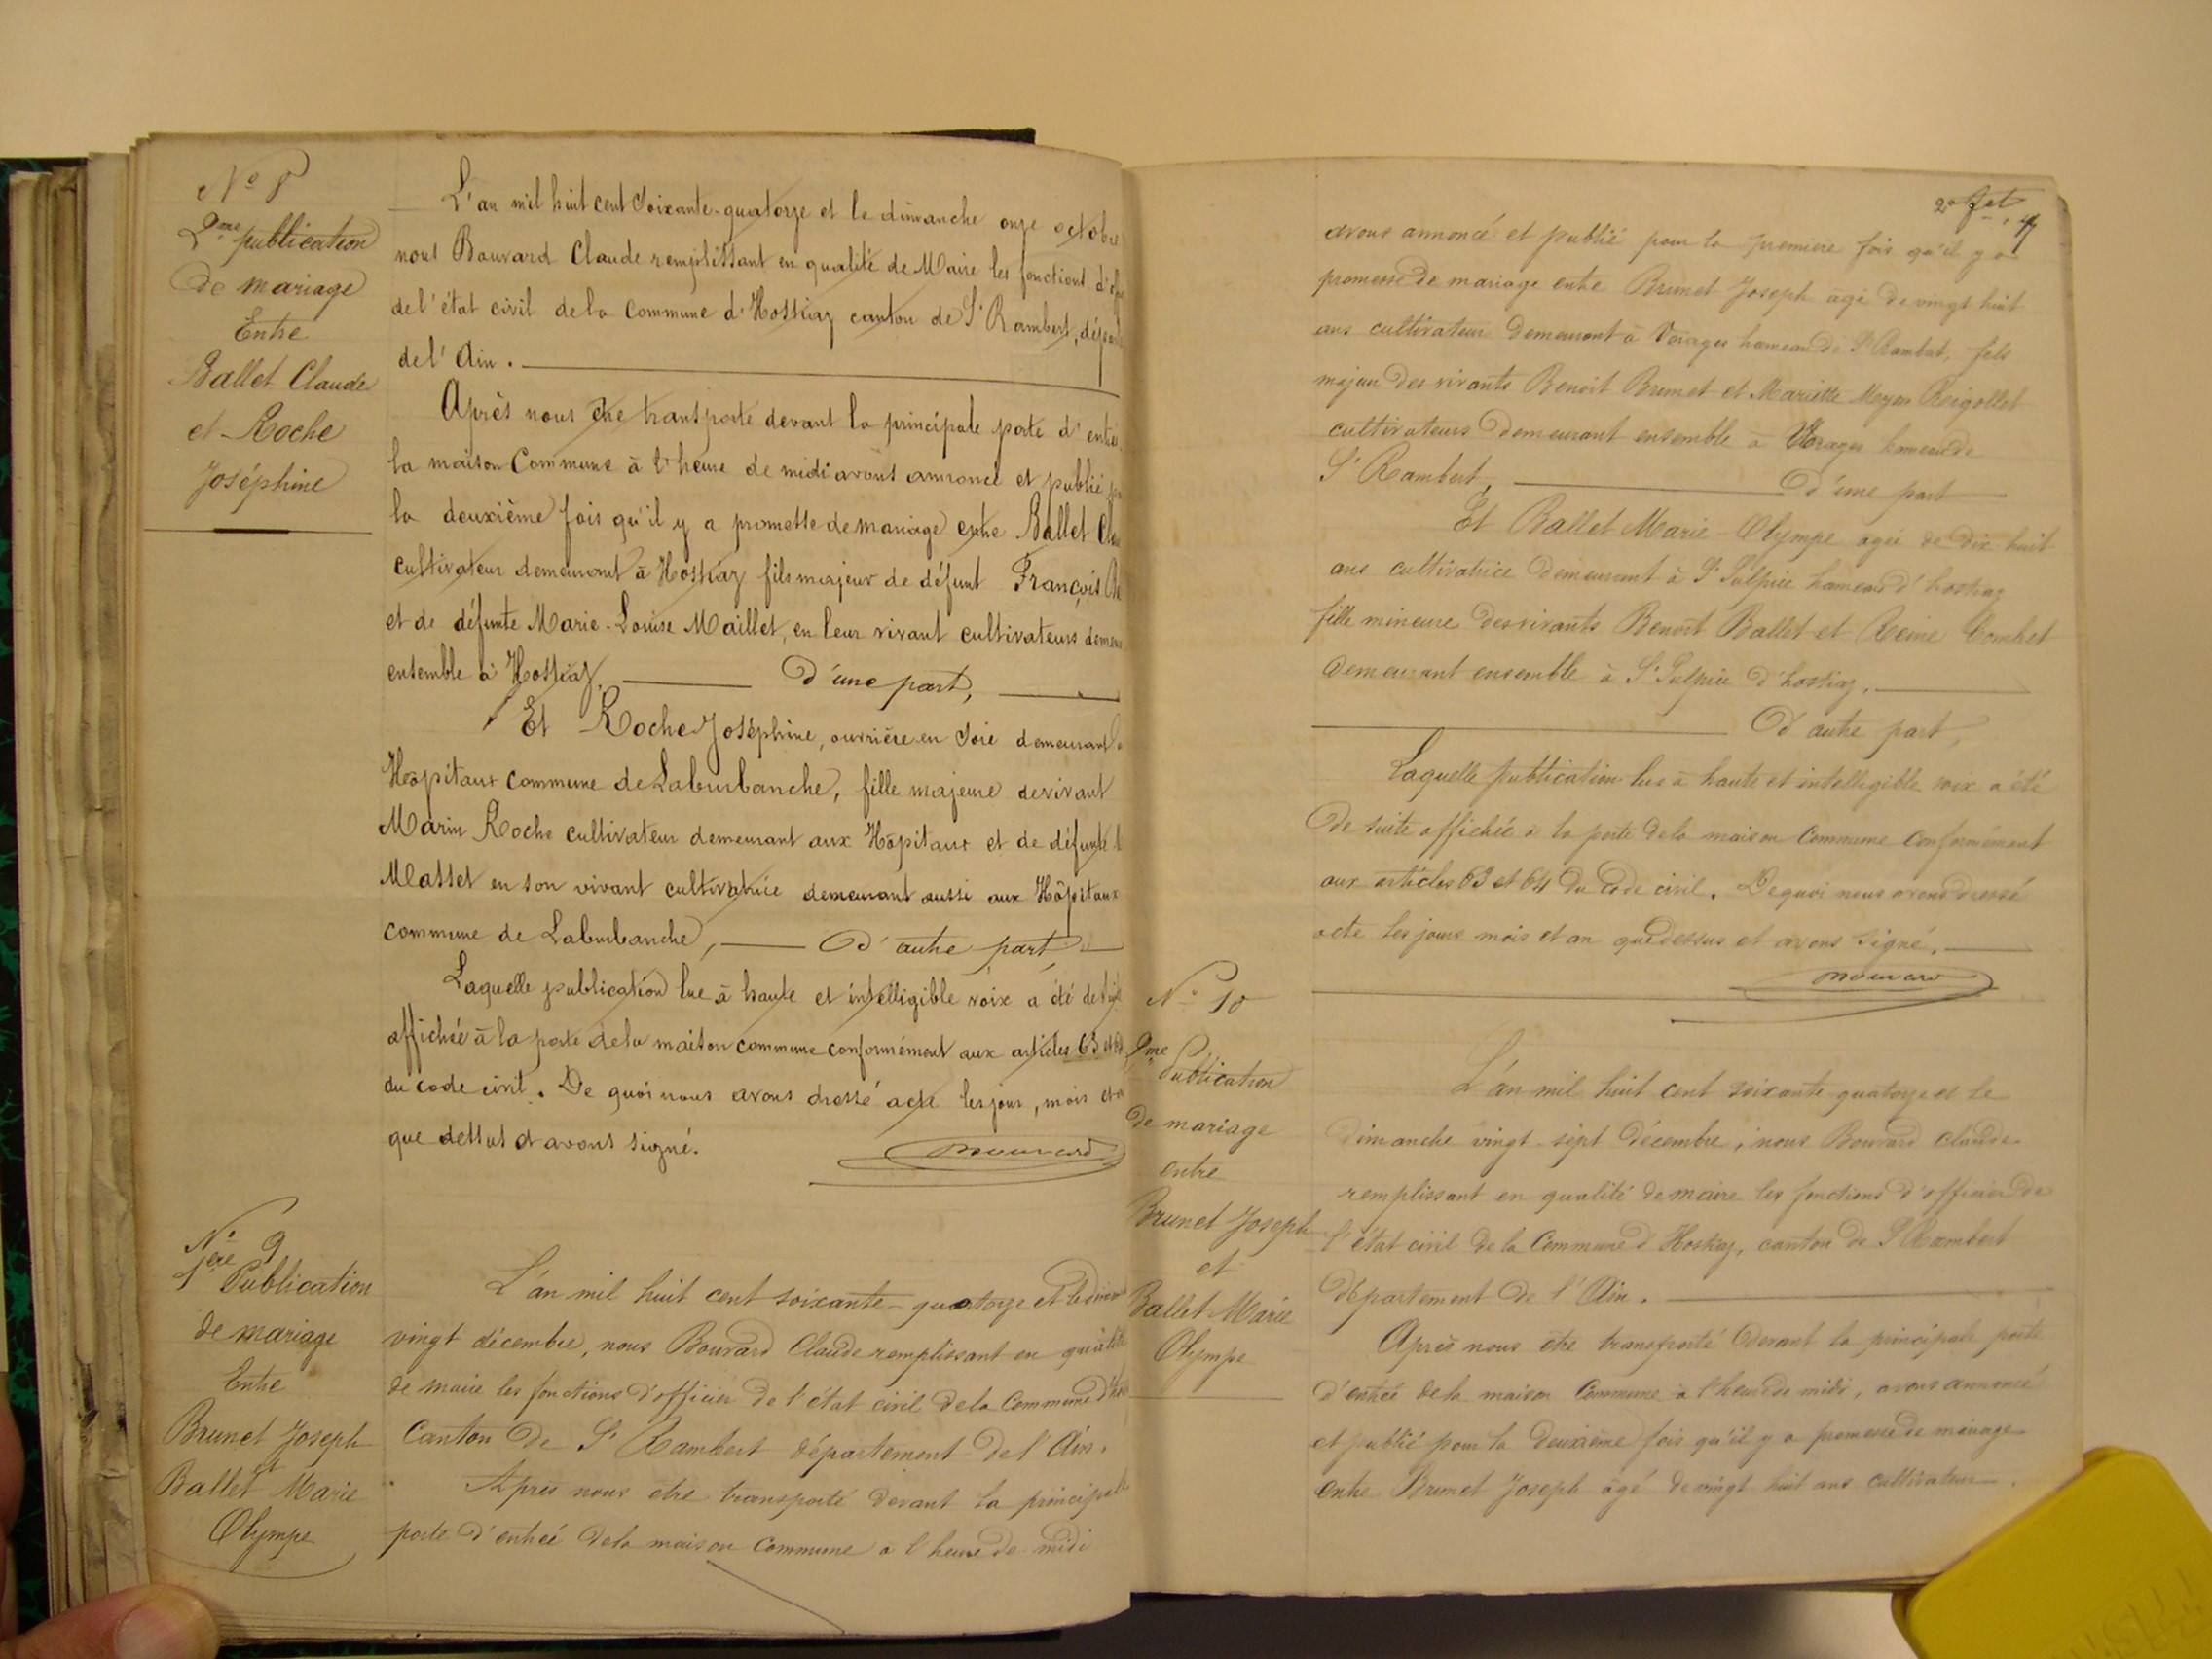 N° 8
2me publication
de mariage
Entre
Ballet Claude
et Roche
Joséphine
L'an mil huit cent soixante-quatorze et le dimanche onze octobre
nous Bouvard Claude remplissant en qualité de Maire les fonctions
de l'état civil de la Commune d'Hostiaz canton de St Rambert,
de l'Ain.
Après nous être transporté devant la principale porte d'
la maison Commune à l'heure de midi avons annoncé et publié
la deuxième fois qu'il y a promesse de mariage entre Ballet
cultivateur demeurant à Hostiaz fils majeur de défunt François
et de défunte Marie-Louise Maillet, en leur vivant cultivateurs
ensemble à Hostiaz, d'une part,
Et Roche Joséphine, ouvrière en soie demeurant
Hôpitaux commune de Laburbanche, fille majeure de vivant
Marin Roche cultivateur demeurant aux Hôpitaux et de défunte
Masset en son vivant cultivatrice demeurant aussi aux Hôpitaux
commune de Laburbanche, d'autre part,
Laquelle publication lue à haute et intelligible voix a été de
affichée à la porte de la maison commune conformément aux articles 63 et
du code civil. De quoi nous avons dressé acte les jour, mois et
que dessus et avons signé.
Bouvard
N° 9
1ère Publication
de mariage
Entre
Brunet Joseph
et
Ballet Marie
Olympe
L'an mil huit cent soixante-quatorze et le
vingt décembre, nous Bouvard Claude remplissant en qualité
de maire les fonctions d'officier de l'état civil de la Commune
Canton de St Rambert département de l'Ain.
Après nous être transporté devant la principale
porte d'entrée de la maison Commune a l'heure de midi
avons annoncé et publié pour la première fois qu'il y a
promesse de mariage entre Brunet Joseph âgé de vingt huit
ans cultivateur demeurant à Vorages hameau de St Rambert, fils
majeur des vivants Benoit Brunet et Mariette Rigollet
cultivateurs demeurant ensemble à Vorages hameau de
St Rambert, d'une part
Et Ballet Marie-Olympe agée de dix-huit
ans cultivatrice demeurant à St Sulpice hameau d'hostiaz
fille mineure des vivants Benoit Ballet et Reine
demeurant ensemble à St Sulpice d'hostiaz,
d'autre part,
Laquelle publication lue à haute et intelligible voix a été
de suite affichée à la porte de la maison Commune conformément
aux articles 63 et 64 du Code civil. De quoi nous avons dressé
acte les jours mois et an que dessus et avons signé.
Bouvard
N° 10
2me
Publication
de mariage
entre
Brunet Joseph
et
Ballet Marie
Olympe
L'an mil huit cent soixante quatorze et le
dimanche vingt-sept décembre, nous Bouvard Claude
remplissant en qualité de maire les fonctions d'officier de
l'état civil de la Commune d'Hostiaz, canton de St Rambert
département de l'Ain.
Après nous être transporté devant la principale porte
d'entrée de la maison Commune à l'heure de midi, avons annoncé
et publié pour la deuxième fois qu'il y a promesse de mariage
entre Brunet Joseph âgé de vingt huit ans cultivateur